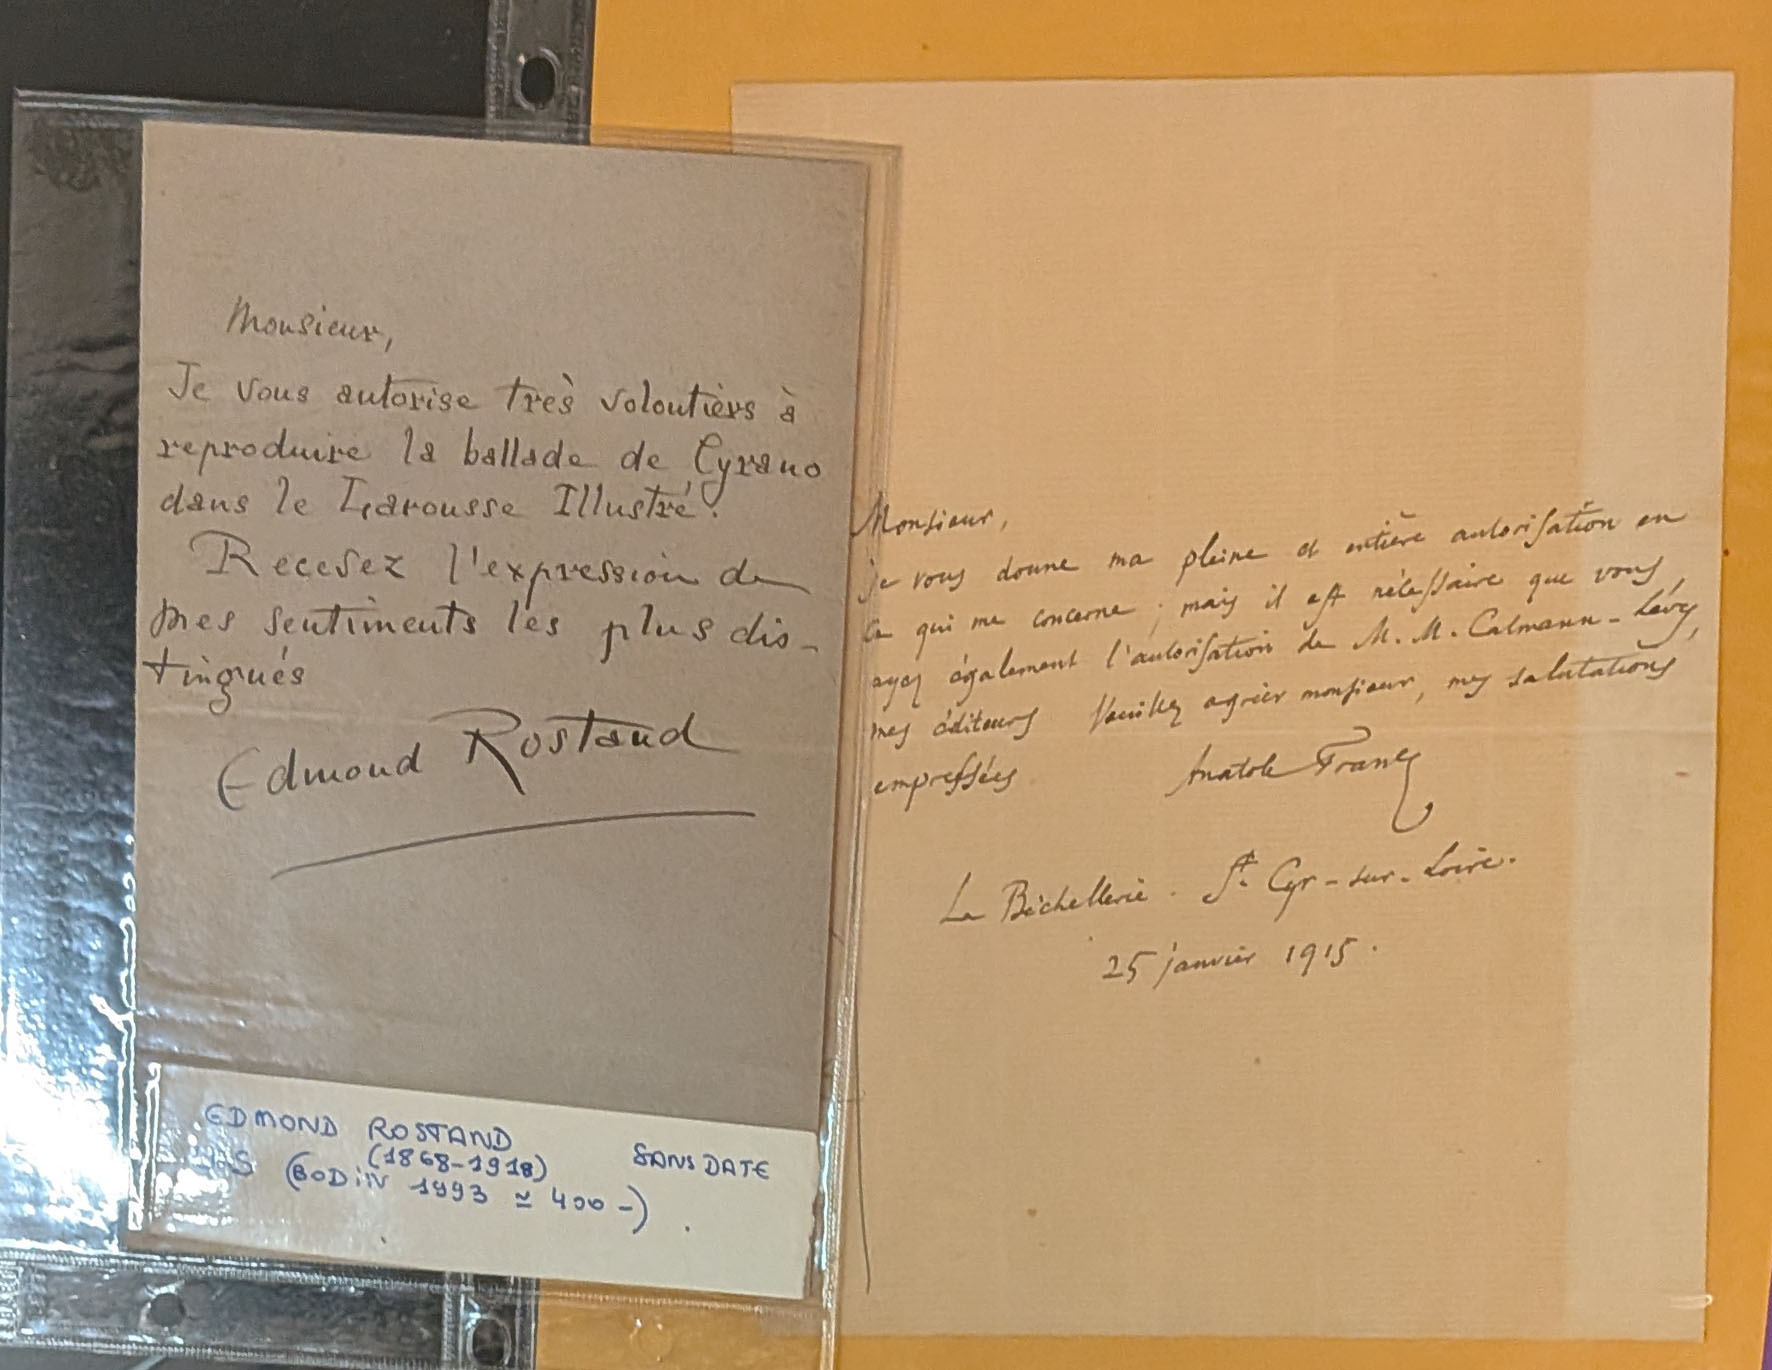 Monsieur,
Je vous autorise très volontiers à
reproduire la ballade de Cyrano
dans le Larousse Illustré.
Recevez l'expression de
mes sentiments les plus dis-
tingués
Edmond Rostand
EDMOND ROSTAND
(1868-1918)
SANS DATE
S (BODIN 1993 ≃ 400 -)
Monsieur,
je vous donne ma pleine et entière autorisation en
ce qui me concerne ; mais il est nécessaire que vous
ayez également l'autorisation de M. M. Calmann-Lévy,
mes éditeurs Veuillez agréer monsieur, mes salutations
empressées
Anatole France
La Béchellerie . St Cyr-sur-Loire.
25 janvier 1915.